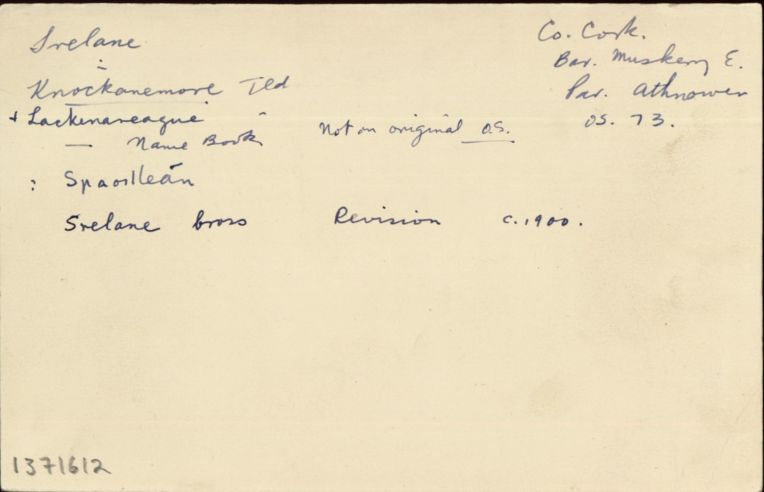 Srelane
Co. Cork.
Bar. Muskerry E.
Knockanemore Tld
Par. Athnowen
+ Lackenareague
— Name Book
Not on original OS.
OS. 73.
: Spaoilleán
Srelane Cross Revision c. 1900.
1371612